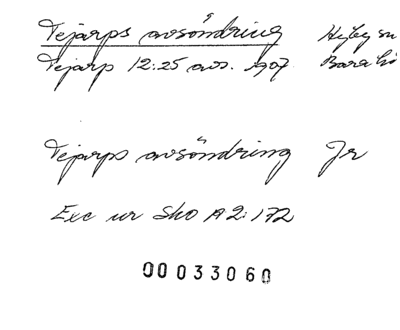 Tejarps avsöndring Hyby sn
Tejarp 12:25 avs. 1907 Bara hd
Tejarps avsöndring Jr
Exc ur Sko A2:172
00033060